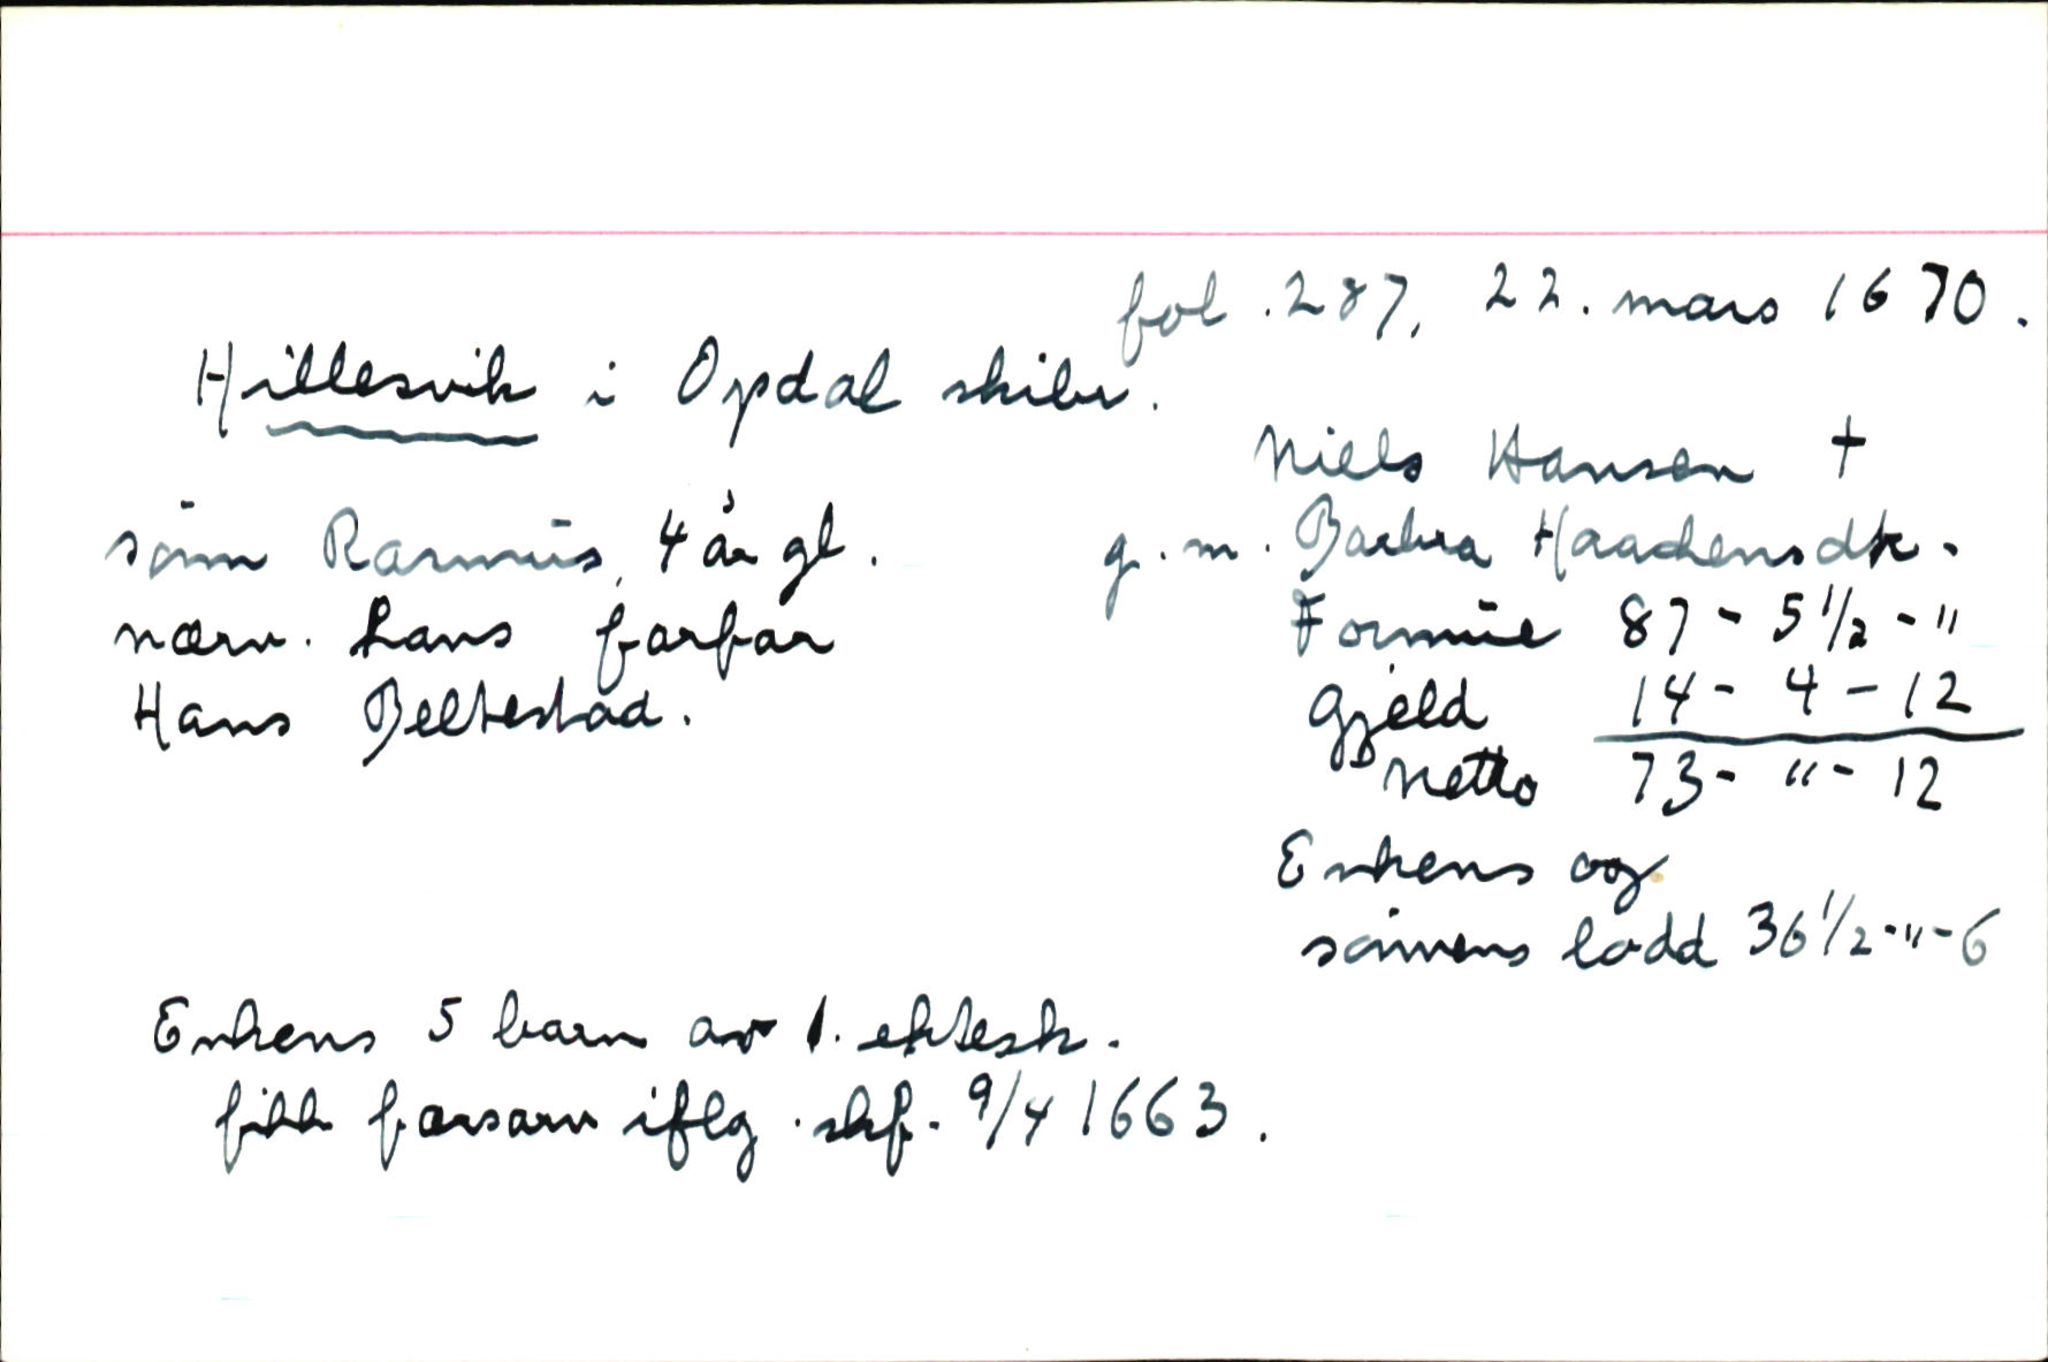 fol. 287, 22. mars 1670.
Hillesvik i Opdal skibr.
Niels Hansen †
g. m. Barbra Haachensdtr.
Formue 87 - 5 1/2 - "
Gjeld 14 - 4 - 12
Netto 73 - " - 12
Enkens og
sønnens lodd 36 1/2 - " - 6
sønn Rasmus, 4 år gl.
nærv. hans farfar
Hans Beltestad.
Enkens 5 barn av 1. ektesk.
fikk farsarv iflg. skf. 9/4 1663.